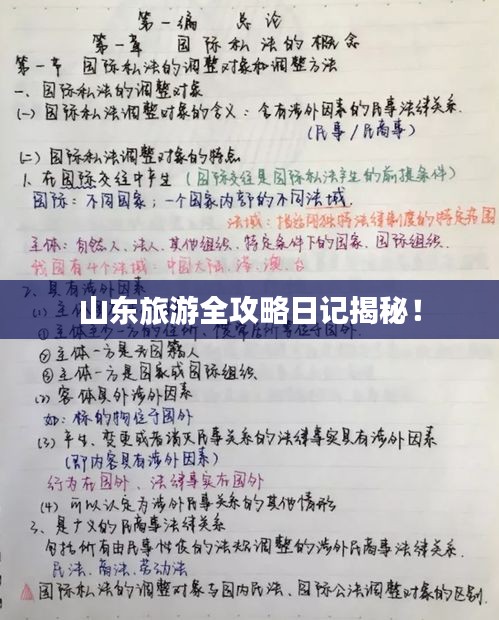 第一编 总论
第一章 国际私法的概念
第一节 国际私法的调整对象和调整方法
一、国际私法的调整对象
(一) 国际私法调整对象的含义：含有涉外因素的民事法律关系.
(民事/民商事)
(二) 国际私法调整对象的特点
1. 在国际交往中产生 (国际交往是国际私法产生的前提条件)
国际：不同国家；一个国家内部的不同法域.
法域：指适用独特法律制度的特定范围
主体：自然人、法人、其他组织、特定条件下的国家、国际组织.
我国有4个法域：中国大陆、港、澳、台
2. 具有涉外因素
山东旅游全攻略日记揭秘！
②主体一方是外国籍人
③主体一方是国家或国际组织
(2) 客体具外涉外因素
如：标的物位于国外
(3) 产生、变更或者消灭民事关系的法律事实具有涉外因素
(即内容具有涉外因素)
行为在国外、法律事实在国外
(4) 可以认定为涉外民事关系的其他情形
3. 是广义的民商事法律关系
包括所有由民事性质的法规调整的涉外民商事法律关系.
民法、商法、劳动法
国际私法的调整对象与国内民法、国际公法调整对象的区别.